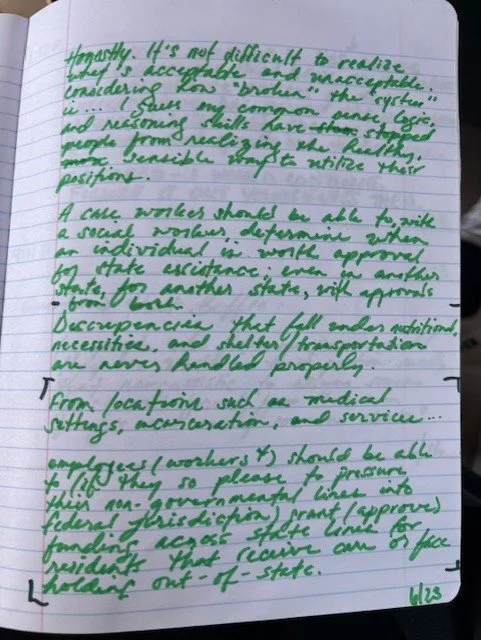 Honestly. It's not difficult to realize
what's acceptable and unacceptable.
Considering how "broken" the system
is... I guess my common sense, logic,
and reasoning skills have stopped
people from realizing the healthy,
sensible ways to utilize their
positions.
A case worker should be able to with
a social worker determine when
an individual is worth approval
for state assistance; even in another
state, for another state, with approvals
from both.
Discrepencies that fall under nutritional,
necessities, and shelter/transportation
are never handled properly.
From locations such as medical
settings, incarceration, and services...
employees (workers) should be able
to (if they so please to pressure
their non-governmental lines into
federal jurisdiction) grant (approve)
funding across state lines for
residents that receive care or face
holding out-of-state.
6/23